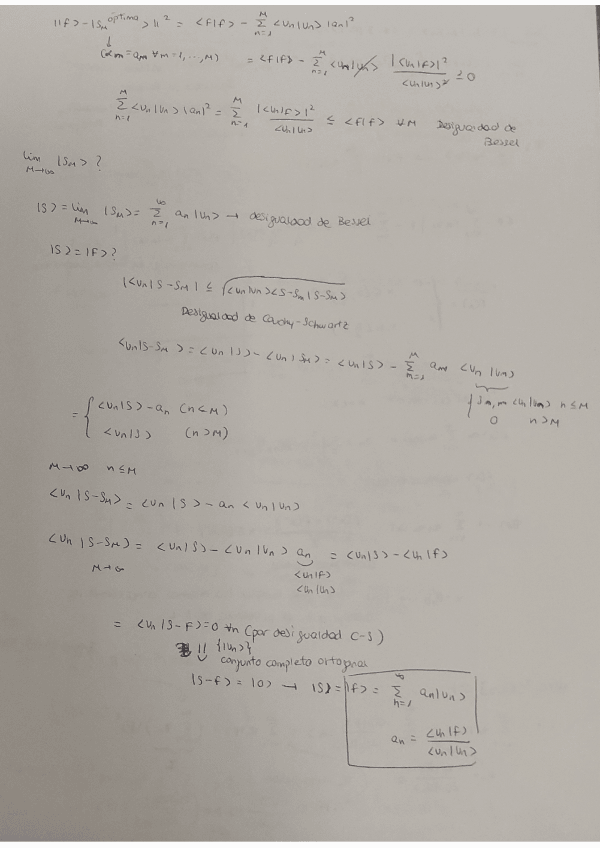 |||f> - |S_M^óptima>||² = <f|f> - Σ_{n=1}^{M} <Un|Un> |an|²
↓
(αm = am ∀m=1,...,M) = <f|f> - Σ_{n=1}^{M} <Un|Un> |<Un|f>|² / <Un|Un>² ≥ 0
Σ_{n=1}^{M} <Un|Un> |an|² = Σ_{n=1}^{M} |<Un|f>|² / <Un|Un> ≤ <f|f> ∀M Desigualdad de
Bessel
lim_{M→∞} |S_M> ?
|S> = lim_{M→∞} |S_M> = Σ_{n=1}^{∞} an |Un> → desigualdad de Bessel
|S> = |f> ?
|<Un|S-S_M>| ≤ √<Un|Un><S-S_M|S-S_M>
Desigualdad de Cauchy-Schwartz
<Un|S-S_M> = <Un|S> - <Un|S_M> = <Un|S> - Σ_{m=1}^{M} am <Un|Um>
{ δn,m <Un|Um> n≤M
0 n>M
= { <Un|S> - an (n<M)
<Un|S> (n>M)
M→∞ n≤M
<Un|S-S_M> = <Un|S> - an <Un|Un>
<Un|S-S_M> = <Un|S> - <Un|Un> an = <Un|S> - <Un|f>
M→∞ <Un|f> / <Un|Un>
= <Un|S-f> = 0 ∀n (por desigualdad C-S)
⇓ {|Un>}
conjunto completo ortogonal
|S-f> = |0> → |S> = |f> = Σ_{n=1}^{∞} an|Un>
an = <Un|f> / <Un|Un>